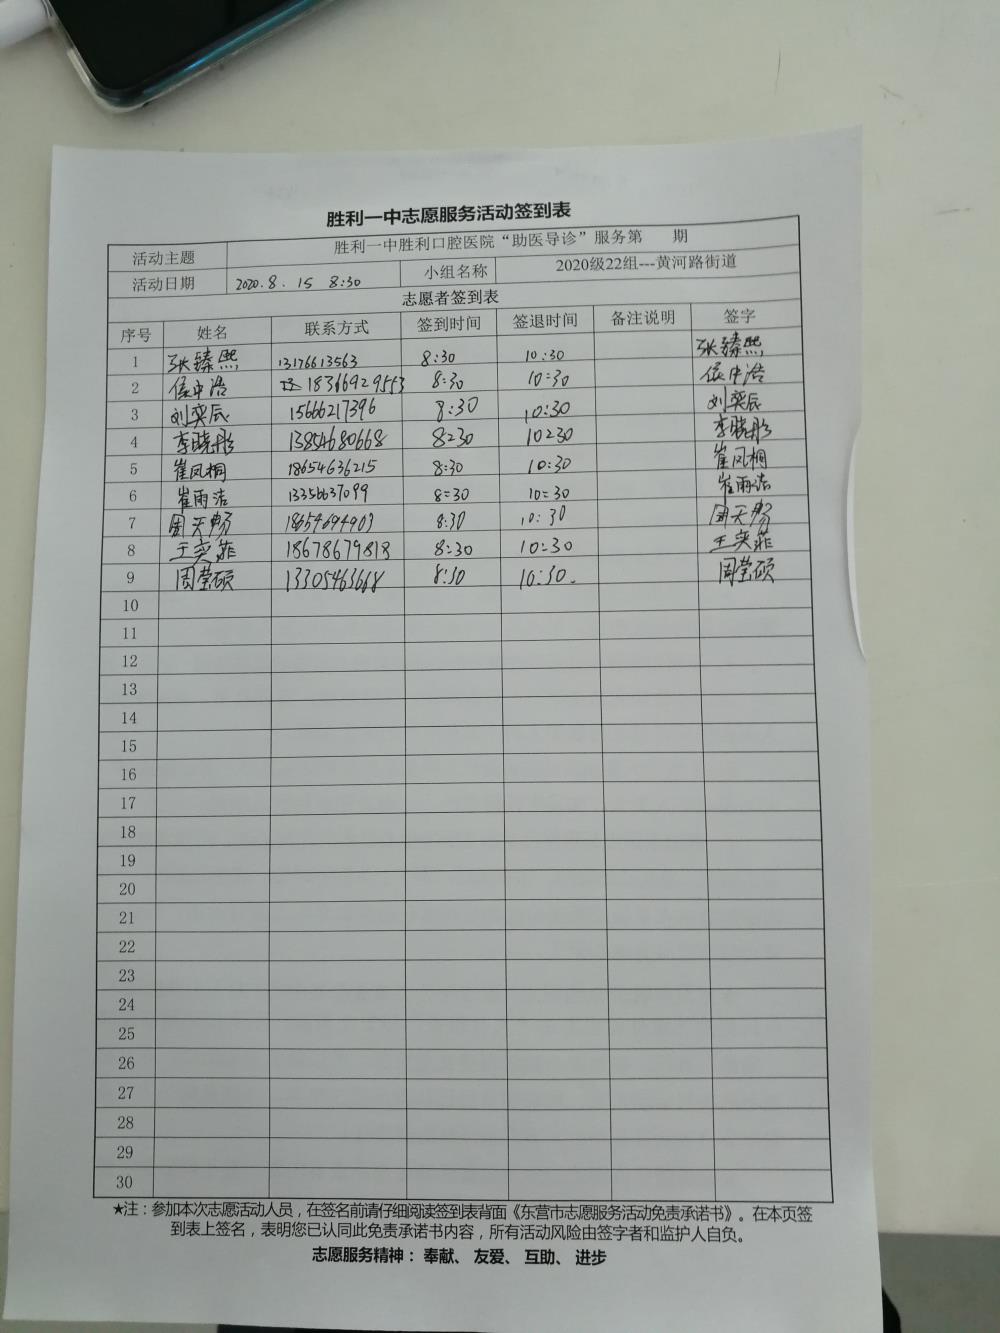 胜利一中志愿服务活动签到表
活动主题 胜利一中胜利口腔医院“助医导诊”服务第 期
活动日期 2020.8.15 8:30 小组名称 2020级22组---黄河路街道
志愿者签到表
序号 姓名 联系方式 签到时间 签退时间 备注说明 签字
1 张臻熙 13176613563 8:30 10:30 张臻熙
2 侯中浩 18366929553 8:30 10:30 侯中浩
3 刘奕辰 15666217396 8:30 10:30 刘奕辰
4 李晓彤 13854680668 8:30 10:30 李晓彤
5 崔凤桐 18654636215 8:30 10:30 崔凤桐
6 崔雨洁 13356637099 8:30 10:30 崔雨洁
7 周天畅 18654694903 8:30 10:30 周天畅
8 王奕菲 18678679818 8:30 10:30 王奕菲
9 周莹硕 13305463668 8:30 10:30. 周莹硕
10
11
12
13
14
15
16
17
18
19
20
21
22
23
24
25
26
27
28
29
30
★注：参加本次志愿活动人员，在签名前请仔细阅读签到表背面《东营市志愿服务活动免责承诺书》。在本页签
到表上签名，表明您已认同此免责承诺书内容，所有活动风险由签字者和监护人自负。
志愿服务精神：奉献、友爱、互助、进步